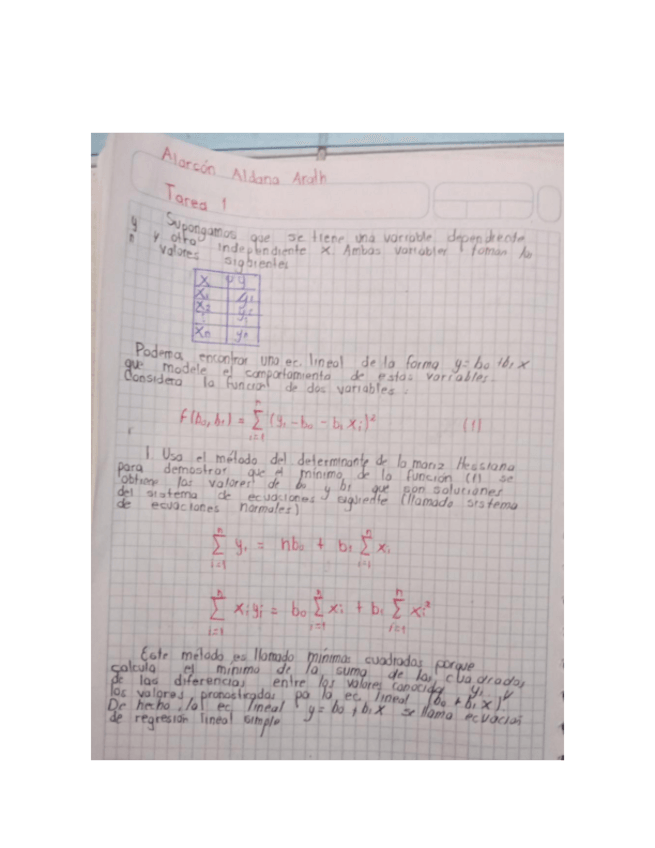 Alarcón Aldana Arath
Tarea 1
Supongamos que se tiene una variable dependiente
y y otra independiente x. Ambas variables toman los
n valores siguientes
x y
x₁ y₁
x₂ y₂
: :
xₙ yₙ
Podema encontrar una ec. lineal de la forma y = b₀ + b₁ x
que modele el comportamiento de estas variables.
Considera la funcion de dos variables.
f(b₀, b₁) = Σ_{i=1}^{n} (yᵢ - b₀ - b₁ xᵢ)² (1)
1. Usa el método del determinante de la matriz Hessiana
para demostrar que el mínimo de la función (1) se
obtiene las valores de b₀ y b₁ que son soluciones
del sistema de ecuaciones siguiente (llamado sistema
de ecuaciones normales)
Σ_{i=1}^{n} yᵢ = nb₀ + b₁ Σ_{i=1}^{n} xᵢ
Σ_{i=1}^{n} xᵢyᵢ = b₀ Σ_{i=1}^{n} xᵢ + b₁ Σ_{i=1}^{n} xᵢ²
Este método es llamado mínimas cuadradas porque
calcula el mínimo de la suma de las cuadradas
de las diferencias entre las valores conocidas yᵢ y
las valores pronosticadas po la ec. lineal (b₀ + b₁ x).
De hecho, la ec lineal y = b₀ + b₁ x se llama ecuación
de regresión lineal simple